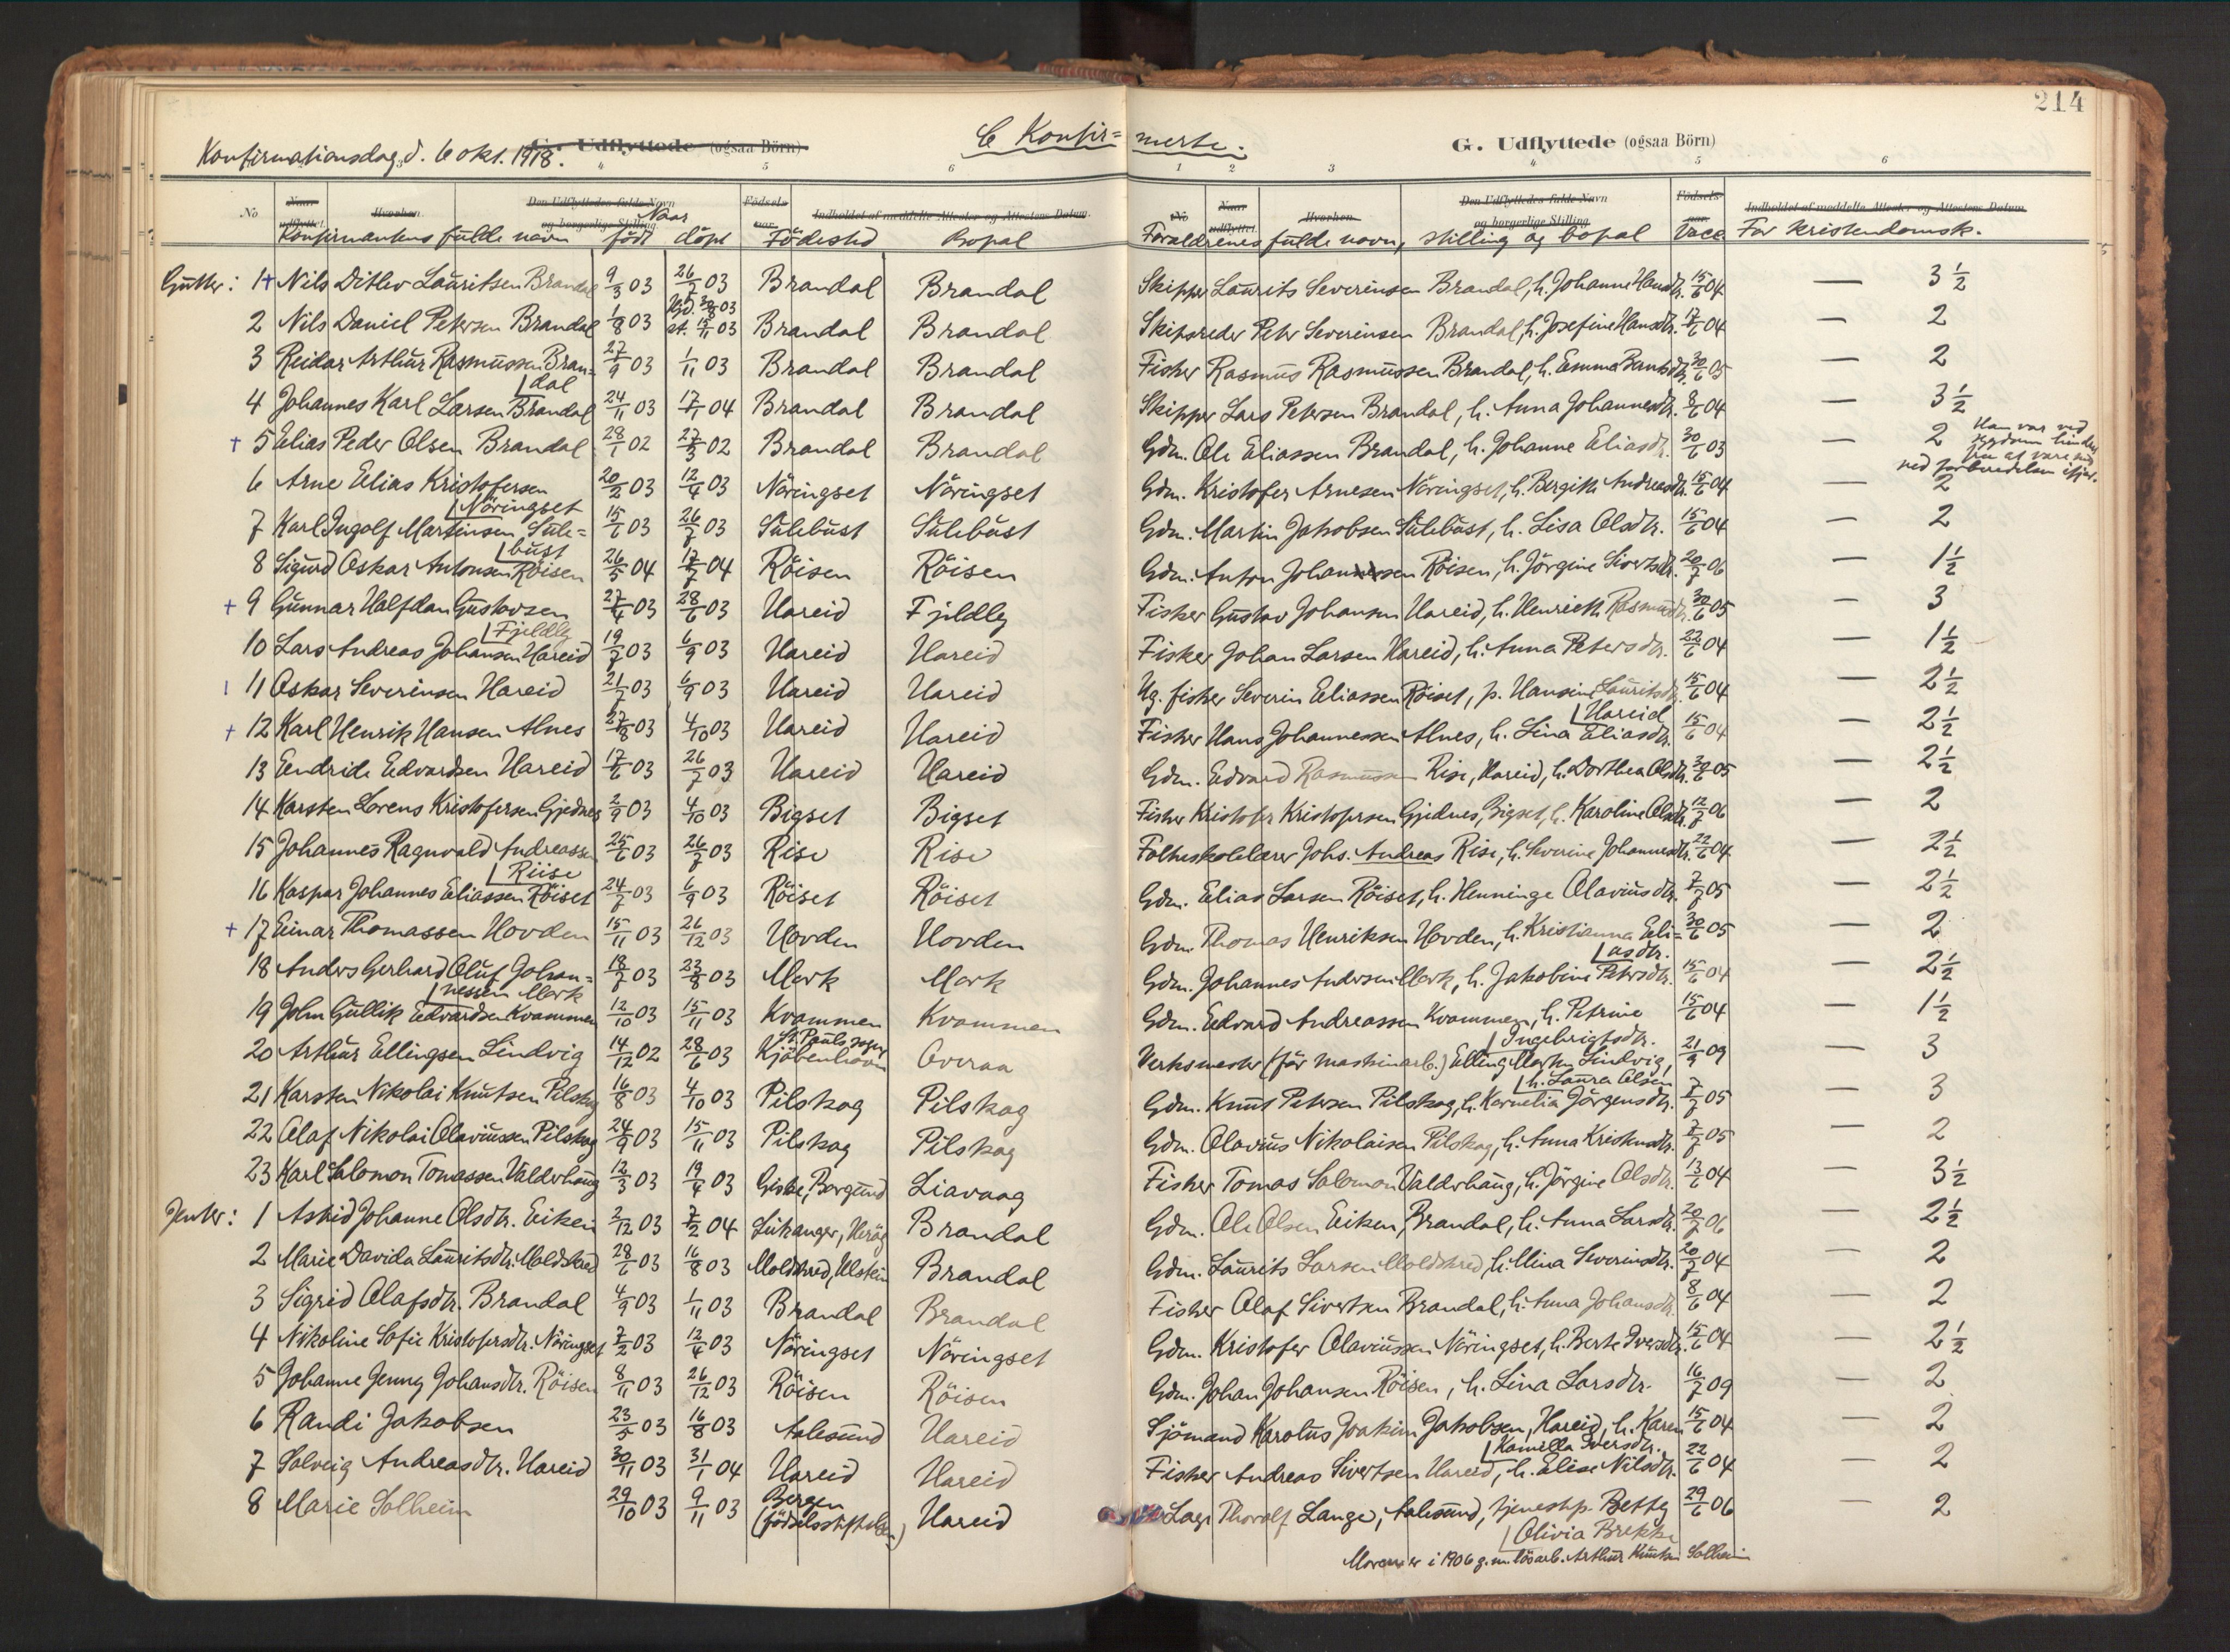 214
Konfirmationsdag, d. 6 okt. 1918.
G. Udflyttede (ogsaa Börn)
C Konfir= merte.
G. Udflyttede (ogsaa Börn)
4 5 6 1 2 3 4 5 6
No Naar udflyttet. Hvorhen. Den Udflyttedes fulde Navn og borgerlige Stilling. Födsels- aar. Indholdet af meddelte Attester og Attestens Datum.
No Naar udflyttet. Hvorhen. Den Udflyttedes fulde Navn og borgerlige Stilling. Födsels- aar. Indholdet af meddelte Attester og Attestens Datum.
Konfirmantens fulde navn Naar född döpt Födested Bopal Foraldrenes fulde navn, stilling og bopal Vacc. For kristendomsk.
Gutter: 1 + Nils Ditlev Lauritsen Brandal 9/3 03 26/7 03 Brandal Brandal Skipper Laurits Severinsen Brandal, h. Johanne Hansdtr. 15/6 04 — 3 1/2
2 Nils Daniel Petersen Brandal 1/8 03 Hjd. 30/8 03 st. 15/11 03 Brandal Brandal Skipsreder Peter Severinsen Brandal, h. Josefine Hansdtr. 17/6 04 — 2
3 Reidar Arthur Rasmussen Bran= dal 27/9 03 1/11 03 Brandal Brandal Fisker Rasmus Rasmussen Brandal, h. Emma 30/6 05 — 2
4 Johannes Karl Larsen Brandal 24/11 03 17/1 04 Brandal Brandal Skipper Lars Petersen Brandal, h. Anna Johannesdtr. 8/6 04 — 3 1/2
+ 5 Elias Peder Olsen Brandal 28/1 02 27/3 02 Brandal Brandal Gdm. Ole Eliassen Brandal, h. Johanne Eliasdtr. 30/6 03 — 2 Han var ved sygdom hindret fra at vare med ved forberedelsen ifjor.
6 Arne Elias Kristofersen Nöringset 20/2 03 12/4 03 Nöringset Nöringset Gdm. Kristofer Arnesen Nöringset, h. Bergithe Andreasdtr. 15/6 04 — 2
7 Karl Ingolf Martinsen Sule= bust 15/6 03 26/7 03 Sulebust Sulebust Gdm. Martin Jakobsen Sulebust, h. Lisa Olsdtr. 15/6 04 — 2
8 Sigurd Oskar Antonsen Röisen 26/5 04 17/7 04 Röisen Röisen Gdm. Anton Johansen Röisen, h. Jörgine Sivertsdtr. 20/7 06 — 1 1/2
+ 9 Gunnar Halfdan Gustavsen Fjeldly 27/4 03 28/6 03 Hareid Fjeldly Fisker Gustav Johansen Hareid, h. Henriette Rasmusdtr. 30/6 05 — 3
10 Lars Andreas Johansen Hareid 19/7 03 6/9 03 Hareid Hareid Fisker Johan Larsen Hareid, h. Anna Petersdtr. 22/6 04 — 1 1/2
11 Oskar Severinsen Hareid 21/7 03 6/9 03 Hareid Hareid Ug. fisker Severin Eliassen Röiset, p. Hansine Lauritsdtr. Hareid 15/6 04 — 2 1/2
+ 12 Karl Henrik Hansen Alnes 27/8 03 4/10 03 Hareid Hareid Fisker Hans Johannessen Alnes, h. Lina Eliasdtr. 15/6 04 — 2 1/2
13 Eendride Edvardsen Hareid 17/6 03 26/7 03 Hareid Hareid Gdm. Edvard Rasmussen Rise, Hareid, h. Dorthea Olsdtr. 30/6 05 — 2 1/2
14 Karsten Lorens Kristofersen Gjednes 2/9 03 4/10 03 Bigset Bigset Fisker Kristofer Kristofersen Gjednes, Bigset, h. Karoline Olsdtr. 12/7 06 — 2
15 Johannes Ragnvald Andreassen Riise 25/6 03 26/7 03 Rise Rise Folkeskolelærer Johs. Andreas Rise, h. Severine Johannesdtr. 22/6 04 — 2 1/2
16 Kaspar Johannes Eliassen Röiset 24/7 03 6/9 03 Röiset Röiset Gdm. Elias Larsen Röiset, h. Henninge Olaviusdtr. 7/7 05 — 2 1/2
+ 17 Einar Thomassen Hovden 15/11 03 26/12 03 Hovden Hovden Gdm. Thomas Henriksen Hovden, h. Kristianna Eli= asdtr. 30/6 05 — 2
18 Anders Gerhard Oluf Johan= nessen Mork 18/7 03 23/8 03 Mork Mork Gdm. Johannes Andersen Mork, h. Jakobine Petersdtr. 15/6 04 — 2 1/2
19 John Gullik Edvardsen Kvammen 12/10 03 15/11 03 Kvammen Kvammen Gdm. Edvard Andreassen Kvammen, h. Petrine Ingebrigtsdtr. 15/6 04 — 1 1/2
20 Arthur Ellingsen Lindvig 14/12 02 28/6 03 St. Pauls sogn Kjöbenhavn Overaa Verksmester (for maskinarb.) Elling Lindvig, h. Laura Olsen 21/9 09 — 3
21 Karsten Nikolai Knutsen Pilskog 16/8 03 4/10 03 Pilskog Pilskog Gdm. Knut Petersen Pilskog, h. Kornelia Jörgensdtr. 7/7 05 — 3
22 Olaf Nikolai Olaviussen Pilskog 24/9 03 15/11 03 Pilskog Pilskog Gdm. Olavius Nikolaisen Pilskog, h. Anna Kristensdtr. 7/7 05 — 2
23 Karl Salomon Tomassen Valderhaug 12/3 03 19/4 03 Giske, Borgund Liavaag Fisker Tomas Salomon Valderhaug, h. Jörgine Olsdtr. 13/6 04 — 3 1/2
Jenter: 1 Astrid Johanne Olsdtr. Eiken 2/12 03 7/2 04 Leikanger, Heröy Brandal Gdm. Ole Olsen Eiken, Brandal, h. Anna Larsdtr. 20/7 06 — 2 1/2
2 Marie Davida Lauritsdtr. Moldskred 28/6 03 16/8 03 Moldskred, Ulstein Brandal Gdm. Laurits Larsen Moldskred, h. Mina Severinsdtr. 20/7 04 — 2
3 Sigrid Olafsdtr. Brandal 4/9 03 1/11 03 Brandal Brandal Fisker Olaf Sivertsen Brandal, h. Anna Johansdtr. 8/6 04 — 2
4 Nikoline Sofie Kristofersdtr. Nöringset 7/2 03 12/4 03 Nöringset Nöringset Gdm. Kristofer Olaviussen Nöringset, h. Berte Iversdtr. 15/6 04 — 2 1/2
5 Johanne Jenny Johansdtr. Röisen 8/11 03 26/12 03 Röisen Röisen Gdm. Johan Johansen Röisen, h. Lina Larsdtr. 16/7 09 — 2
6 Randi Jakobsen 23/5 03 16/8 03 Aalesund Hareid Sjömand Karolus Joakim Jakobsen, Hareid, h. Karen Kamilla Iversdtr. 15/6 04 — 2
7 Solveig Andreasdtr. Hareid 30/11 03 31/1 04 Hareid Hareid Fisker Andreas Sivertsen Hareid, h. Elise Nilsdtr. 22/6 04 — 2
8 Marie Solheim 29/10 03 9/11 03 Bergen (födselsstiftelsen) Hareid Thoralf Lange, Aalesund, tjenestp. Betty Olivia Brekke 29/6 06 — 2
Moren er i 1906 g. m. lösarb. Arthur Knutsen Solheim